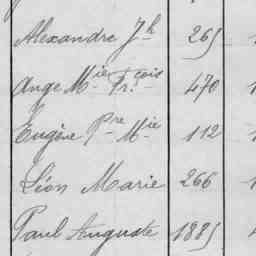 Alexandre Jh 265
Ange Mie Frçois 470
Eugène Pre Mie 112
Léon Marie 266
Paul Auguste 1885